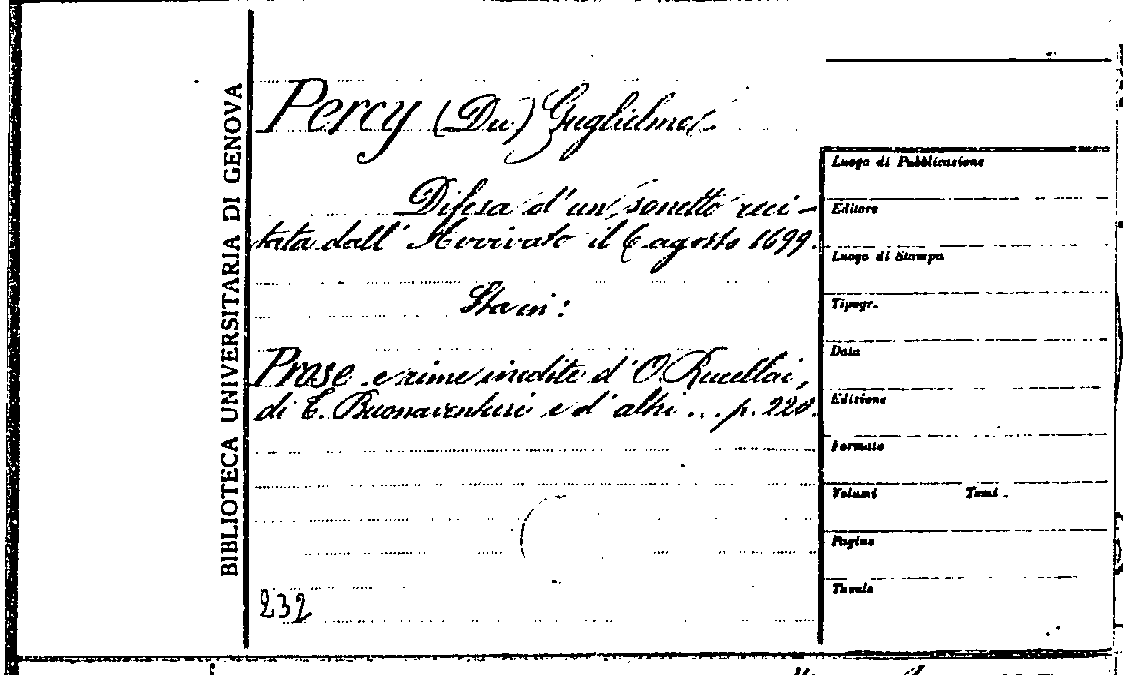 BIBLIOTECA UNIVERSITARIA DI GENOVA
Percy (Du) Guglielmo.
Difesa d'un sonetto reci-
tata dall' Avvivato il 6 agosto 1699.
Sta in:
Prose e rime inedite d'O. Rucellai,
di T. Buonaventuri e d'altri ... p. 220.
232
Luogo di Pubblicazione
Editore
Luogo di Stampa
Tipogr.
Data
Edizione
Formato
Volumi Tomi
Pagine
Tavole